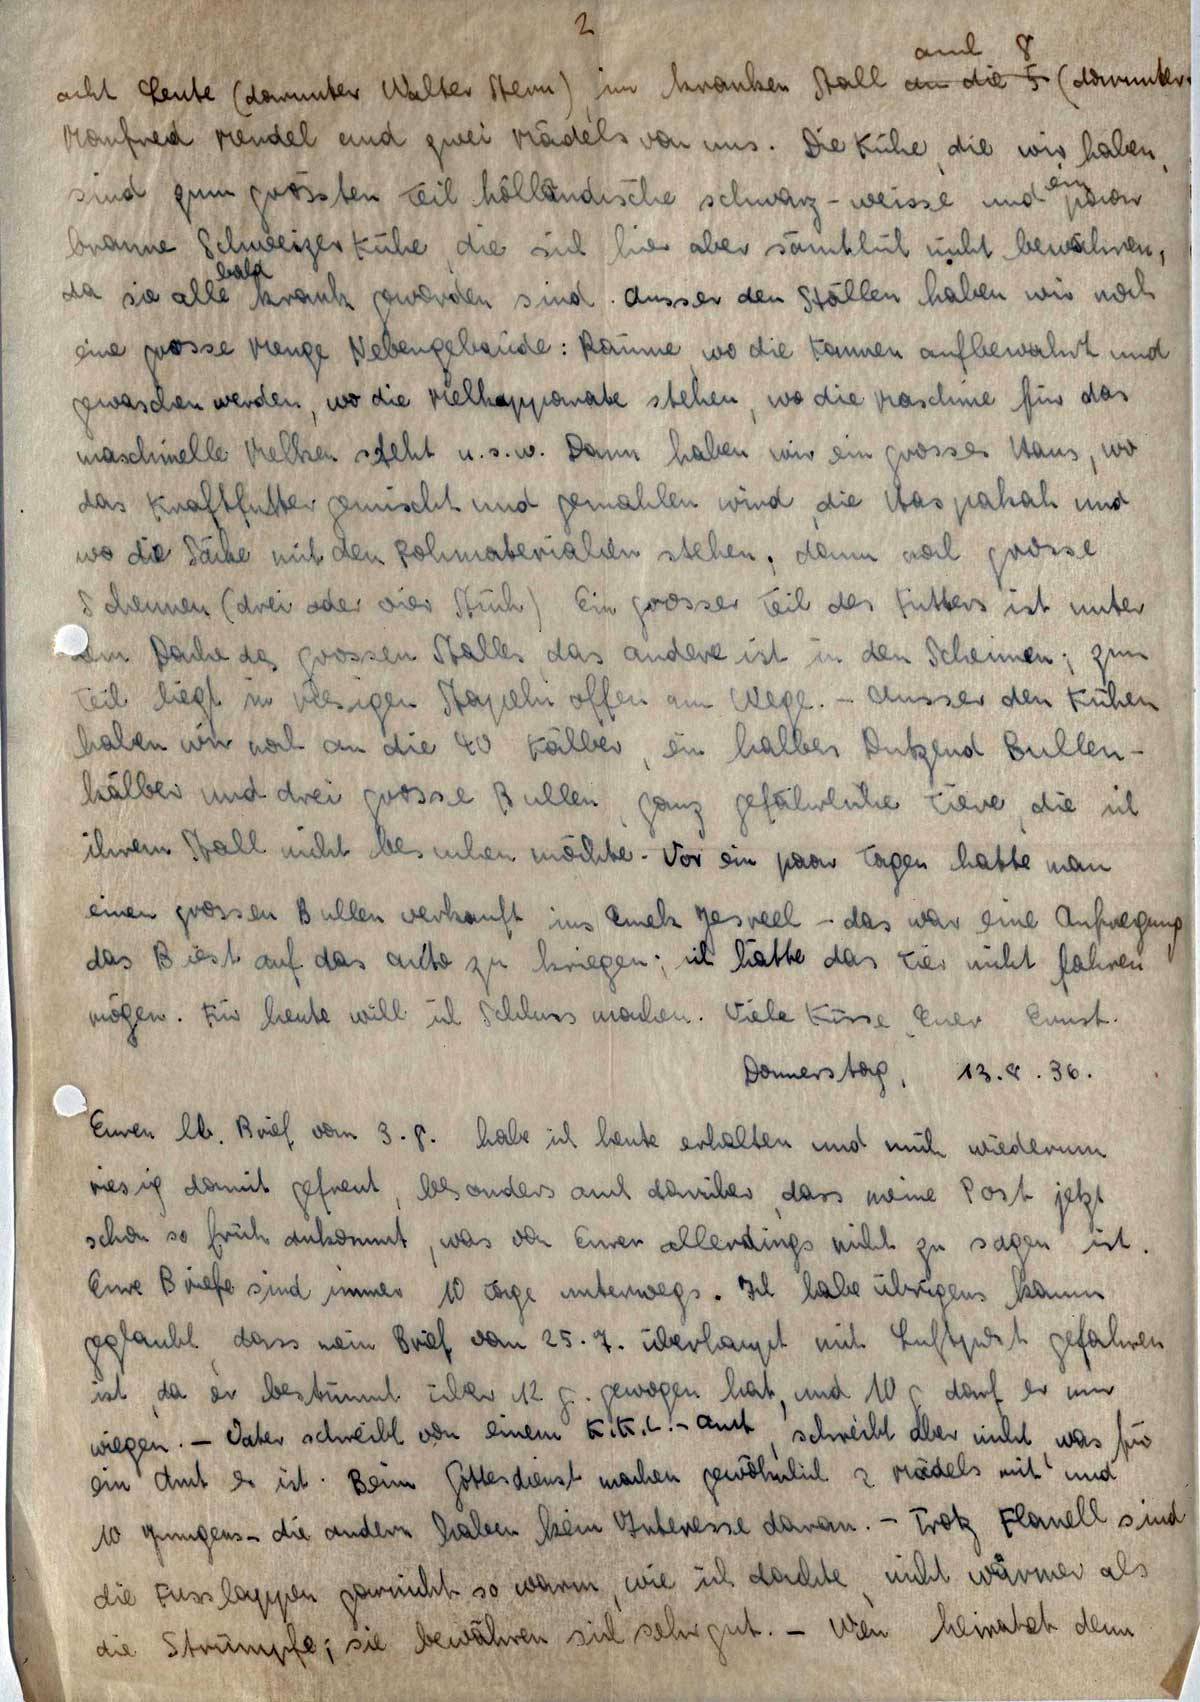 2
acht Leute (darunter Walter Stern), im kranken Stall auch 8 an die 5 (darunter
Manfred Mendel und zwei Mädels von uns. Die Kühe, die wir haben,
sind zum grössten Teil holländische schwarz-weisse und ein paar
braune Schweizer Kühe, die sich hier aber sämtlich nicht bewähren,
da sie alle bald krank geworden sind. Ausser den Ställen haben wir noch
eine grosse Menge Nebengebäude: Räume, wo die Kannen aufbewahrt und
gewaschen werden, wo die Melkapparate stehen, wo die Maschine für das
maschinelle Melken steht u.s.w. Dann haben wir ein grosses Haus, wo
das Kraftfutter gemischt und gemahlen wird, die Haspakah und
wo die Säcke mit den Rohmaterialien stehen, dann noch grosse
Scheunen (drei oder vier Stück) Ein grosser Teil des Futters ist unter
dem Dache des grossen Stalles, das andere ist in den Scheunen; zum
Teil liegt in riesigen Stapeln offen am Wege. - Ausser den Kühen
haben wir noch an die 40 Kälber, ein halbes Dutzend Bullen-
kälber und drei grosse Bullen, ganz gefährliche Tiere, die ich
ihrem Stall nicht besuchen möchte. Vor ein paar Tagen hatte man
einen grossen Bullen verkauft ins Emek Jesreel - das war eine Aufregung
das Biest auf das Auto zu kriegen; ich hätte das Tier nicht fahren
mögen. Für heute will ich Schluss machen. Viele Küsse Euer Ernst.
Donnerstag, 13.8.36.
Euren lb. Brief vom 3.8. habe ich heute erhalten und mich wiederum
riesig damit gefreut, besonders auch darüber, dass meine Post jetzt
schon so früh ankommt, was von Eurer allerdings nicht zu sagen ist.
Eure Briefe sind immer 10 Tage unterwegs. Ich habe übrigens kaum
geglaubt, dass mein Brief vom 25.7. überhaupt mit Luftpost gefahren
ist, da er bestimmt über 12 g. gewogen hat, und 10 g darf er nur
wiegen. - Vater schreibt von einem K.K.L.-Amt, schreibt aber nicht, was für
ein Amt es ist. Beim Gottesdienst machen gewöhnlich 2 Mädels mit und
10 Jungens - die andern haben kein Interesse daran. - Trotz Flanell sind
die Fusslappen garnicht so warm, wie ich dachte, nicht wärmer als
die Strümpfe; sie bewähren sich sehr gut. - Wen heiratet denn